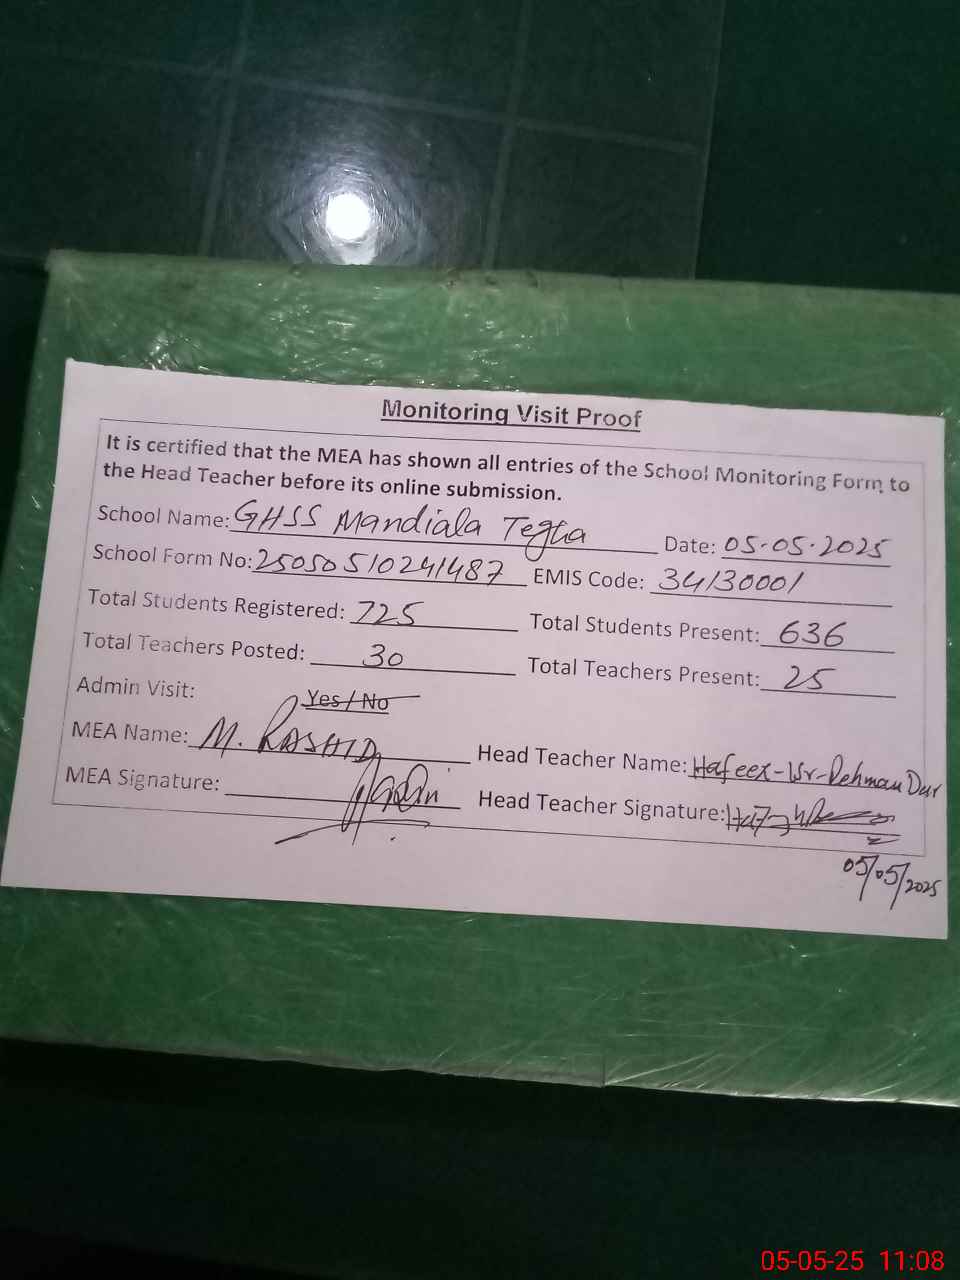 Monitoring Visit Proof
It is certified that the MEA has shown all entries of the School Monitoring Form to
the Head Teacher before its online submission.
School Name: GHSS Mandiala Tegha Date: 05.05.2025
School Form No: 25050510241487 EMIS Code: 34130001
Total Students Registered: 725 Total Students Present: 636
Total Teachers Posted: 30 Total Teachers Present: 25
Admin Visit: Yes / No
MEA Name: M. RASHID Head Teacher Name: Hafeex-Ur-Rehman Dar
MEA Signature: Head Teacher Signature:
05/05/2025
05-05-25 11:08